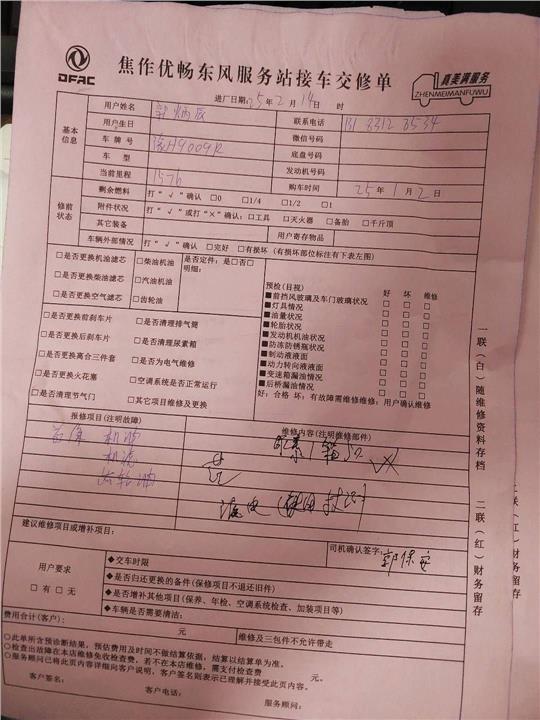 DFAC
焦作优畅东风服务站接车交修单
真美满服务
ZHENMEIMANFUWU
进厂日期:25年2月14日 时
基本信息
用户姓名 联系电话
用户生日 微信号码
车牌号 豫H9009R 底盘号码
车型 发动机号码
当前里程 1576 购车时间 25年1月2日
修前状态
剩余燃料 打“√”确认 □0 □1/4 □1/2 □1
附件状况 打“√”或打“×”确认:□工具 □灭火器 □备胎 □千斤顶
其它装备 用户寄存物品
车辆外部情况 打“√”确认 □完好 □有损坏(有损坏部位标注有下表左图)
□是否更换机油滤芯 □柴油机油 是否定件:是□否□
明细:
□是否更换柴油滤芯 □汽油机油
□是否更换空气滤芯 □齿轮油
预检(目视) 好 坏 维修
■前挡风玻璃及车门玻璃状况 □ □ □
■灯具情况 □ □ □
■油量状况 □ □ □
■轮胎状况 □ □ □
■发动机机油状况 □ □ □
■防冻防锈瓶状况 □ □ □
■制动液液面 □ □ □
■动力转向液液面 □ □ □
■变速箱漏油情况 □ □ □
■后桥漏油情况 □ □ □
好:合格 坏:有故障需维修维修:用户确认维修
□是否更换前刹车片 □是否清理排气筒
□是否更换后刹车片 □是否清理尿素箱
□是否更换离合三件套 □是否为电气维修
□是否更换火花塞 □空调系统是否正常运行
□是否清理节气门 □其它项目维修及更换
报修项目(注明故障) 维修内容(注明维修部件)
首保 机油
机滤
齿轮油
建议维修项目或增补项目:
司机确认签字: 郭保安
用户要求
□有 □无
◆交车时限
◆是否归还更换的备件(保修项目不退还旧件)
◆是否增补其他项目(保养、年检、空调系统检查、加装项目等)
◆车辆是否需要清洁:
费用合计(客户): 元 维修及三包件不允许带走
○此单所含预诊断结果,预估费用及时间不做结算依据,结算以结算单为准。
○检查出故障在本店维修免收检查费,若不在本店维修,需支付检查费 元。
○服务顾问已将此页内容详细向客户说明,客户签名则表示已理解并接受此页内容。
客户签名: 客户电话: 服务顾问:
一联(白)随维修资料存档
二联(红)财务留存
二联(红)财务留存